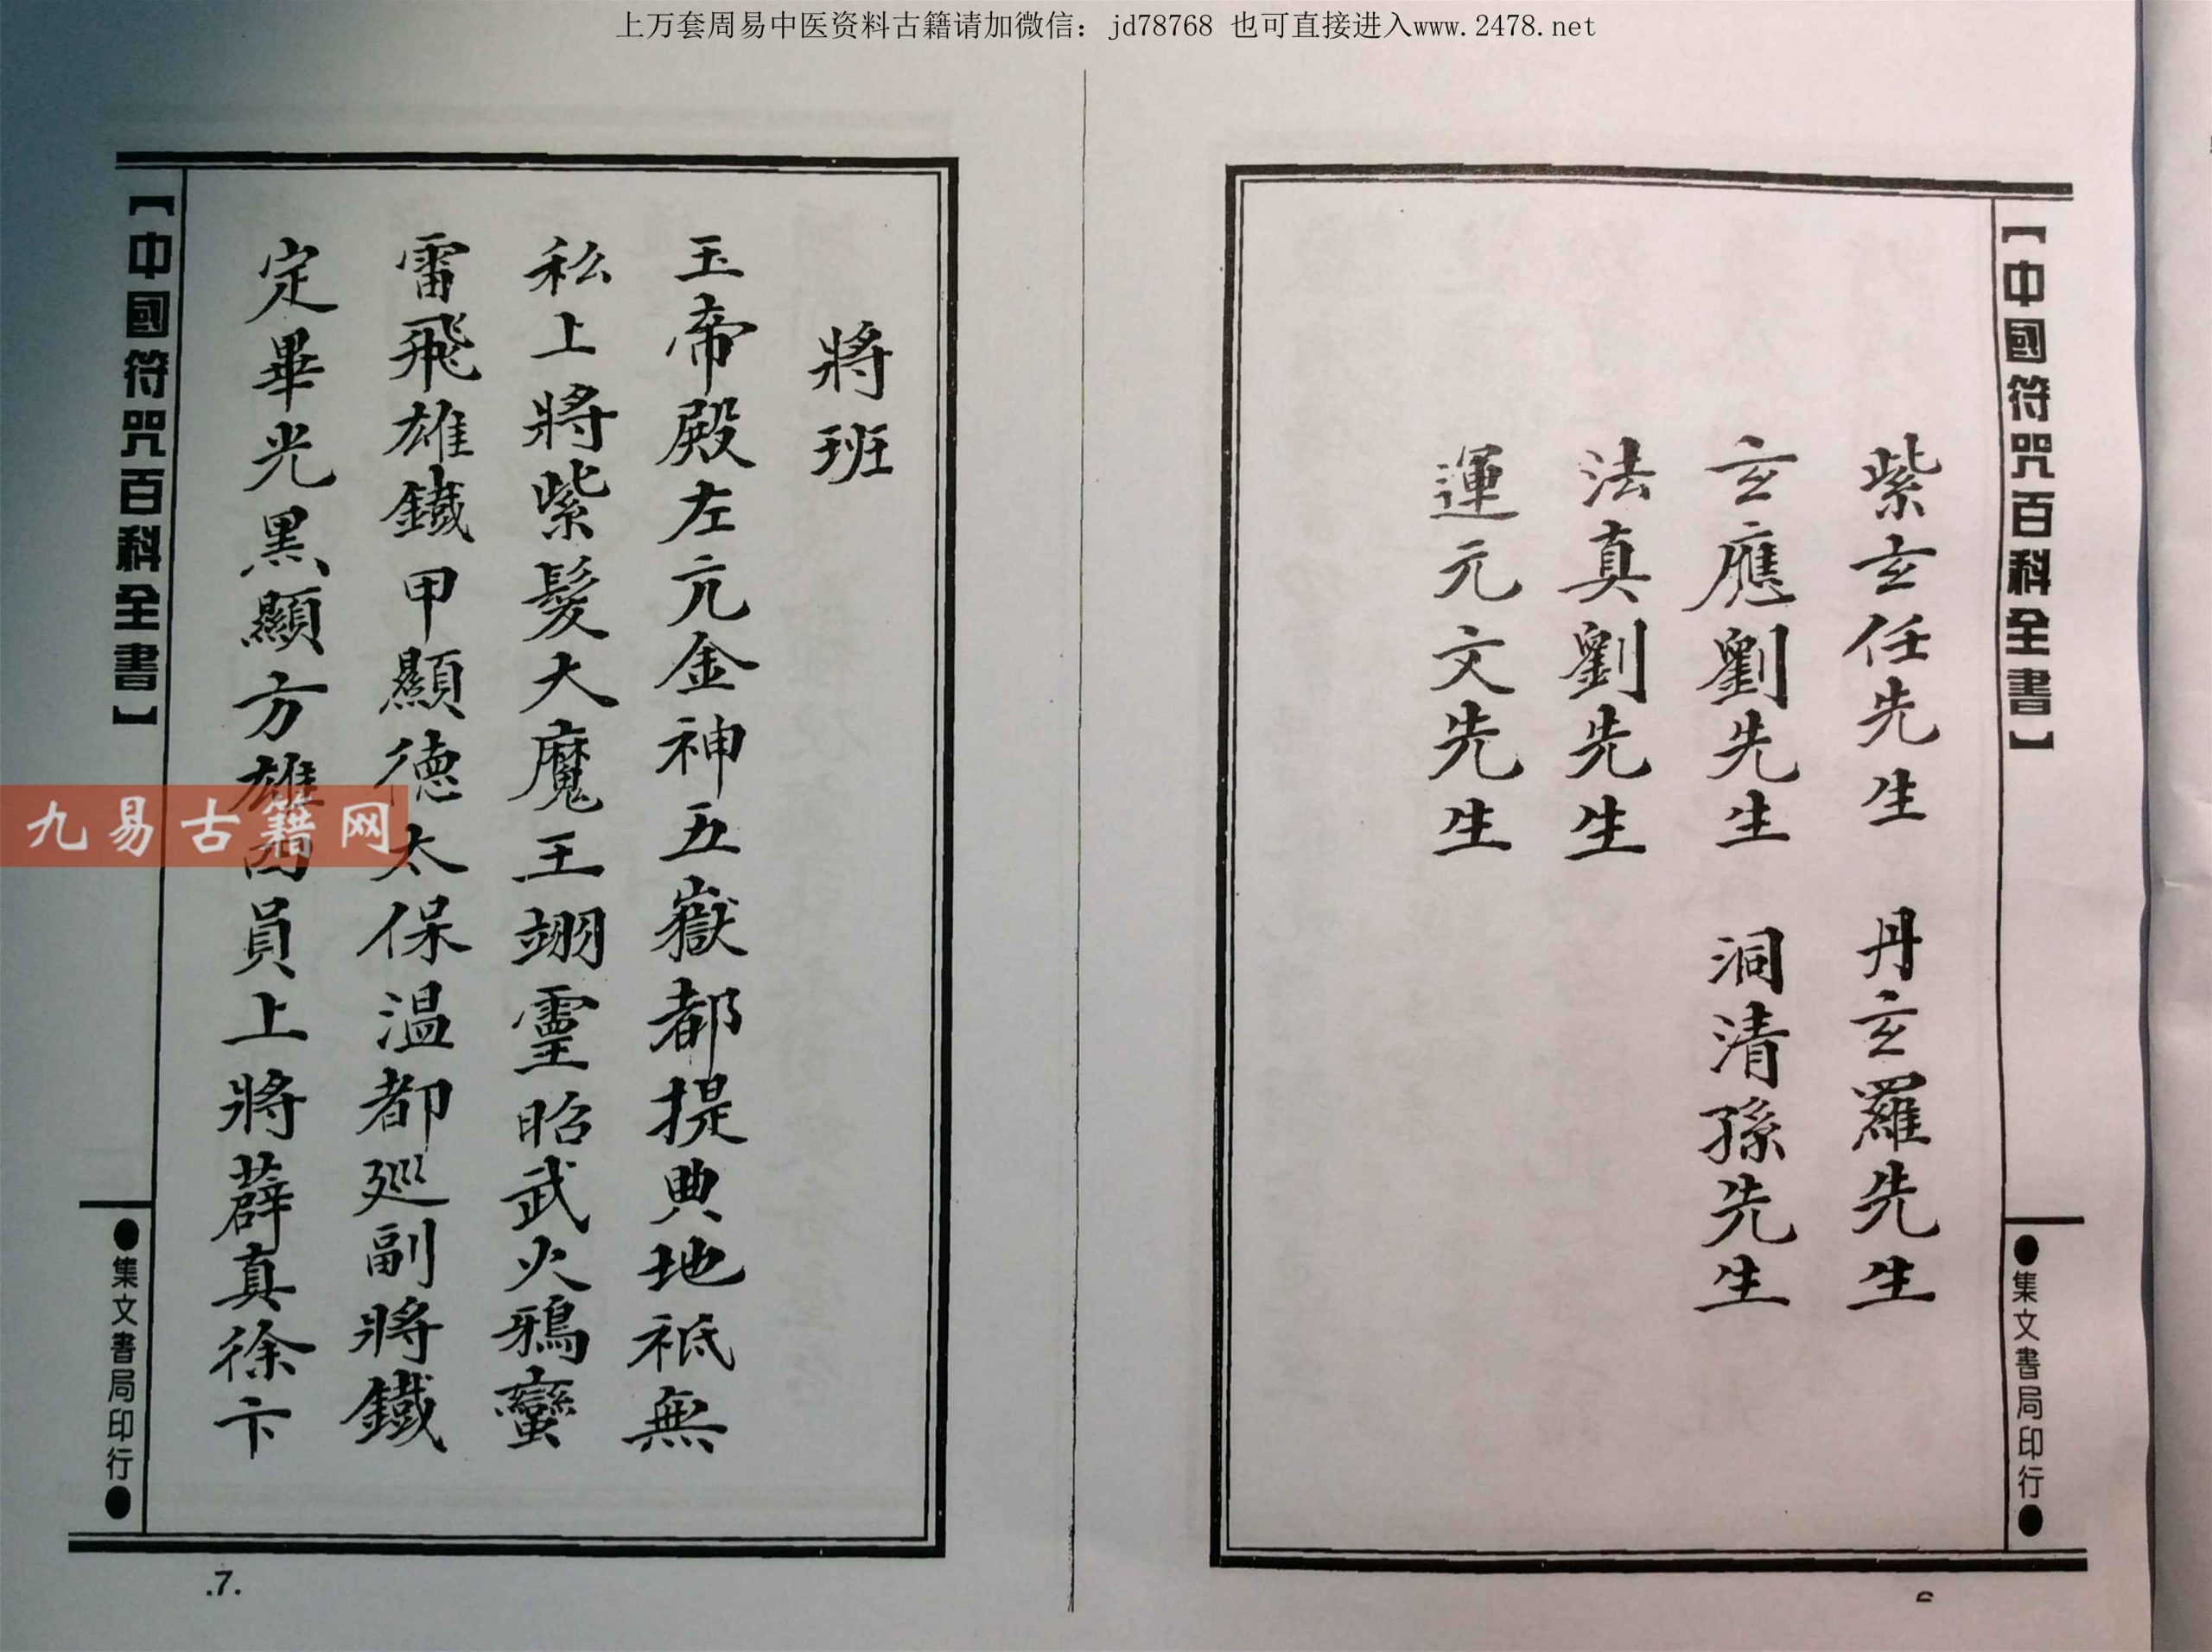 上万套周易中医资料古籍请加微信：jd78768 也可直接进入www.2478.net
【中國符咒百科全書】
●集文書局印行●
紫玄任先生 丹玄羅先生
玄應劉先生 洞清孫先生
法真劉先生
運元文先生
將班
玉帝殿左亢金神五嶽都提典地祇無
私上將紫髮大魔王翊靈昭武火鴉蠻
雷飛雄鐵甲顯德太保溫都巡副將鐵
定畢光黑顯方雄員上將薜真徐卞
【中國符咒百科全書】
●集文書局印行●
九易古籍网
.7.